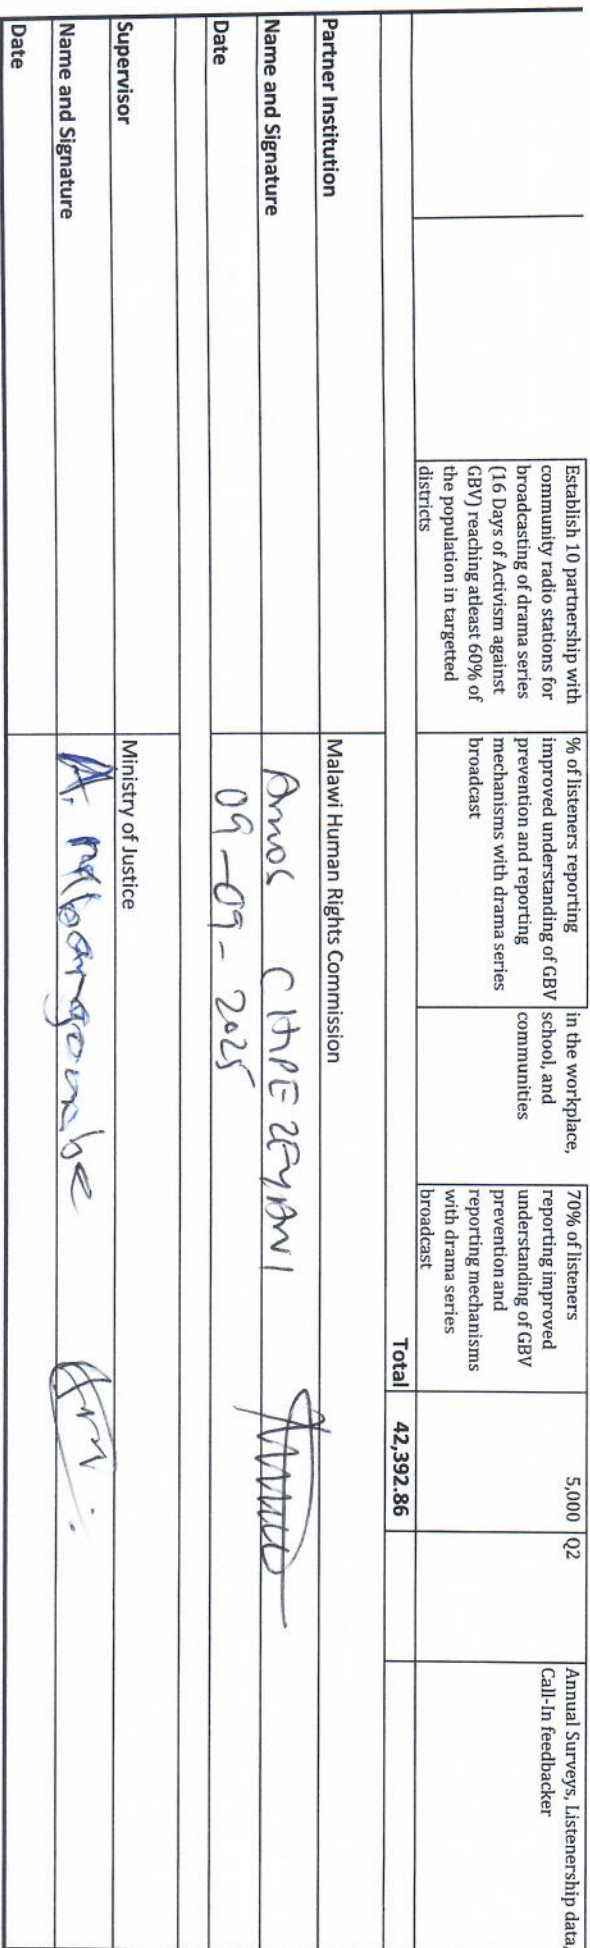 Establish 10 partnership with
community radio stations for
broadcasting of drama series
(16 Days of Activism against
GBV) reaching atleast 60% of
the population in targetted
districts
% of listeners reporting
improved understanding of GBV
prevention and reporting
mechanisms with drama series
broadcast
in the workplace,
school, and
communities
70% of listeners
reporting improved
understanding of GBV
prevention and
reporting mechanisms
with drama series
broadcast
5,000
Q2
Annual Surveys, Listenership data,
Call-In feedbacker
Total 42,392.86
Partner Institution
Malawi Human Rights Commission
Name and Signature
Amos CHPEZEYANI
Date
09-09-2025
Supervisor
Ministry of Justice
Name and Signature
A.
Date